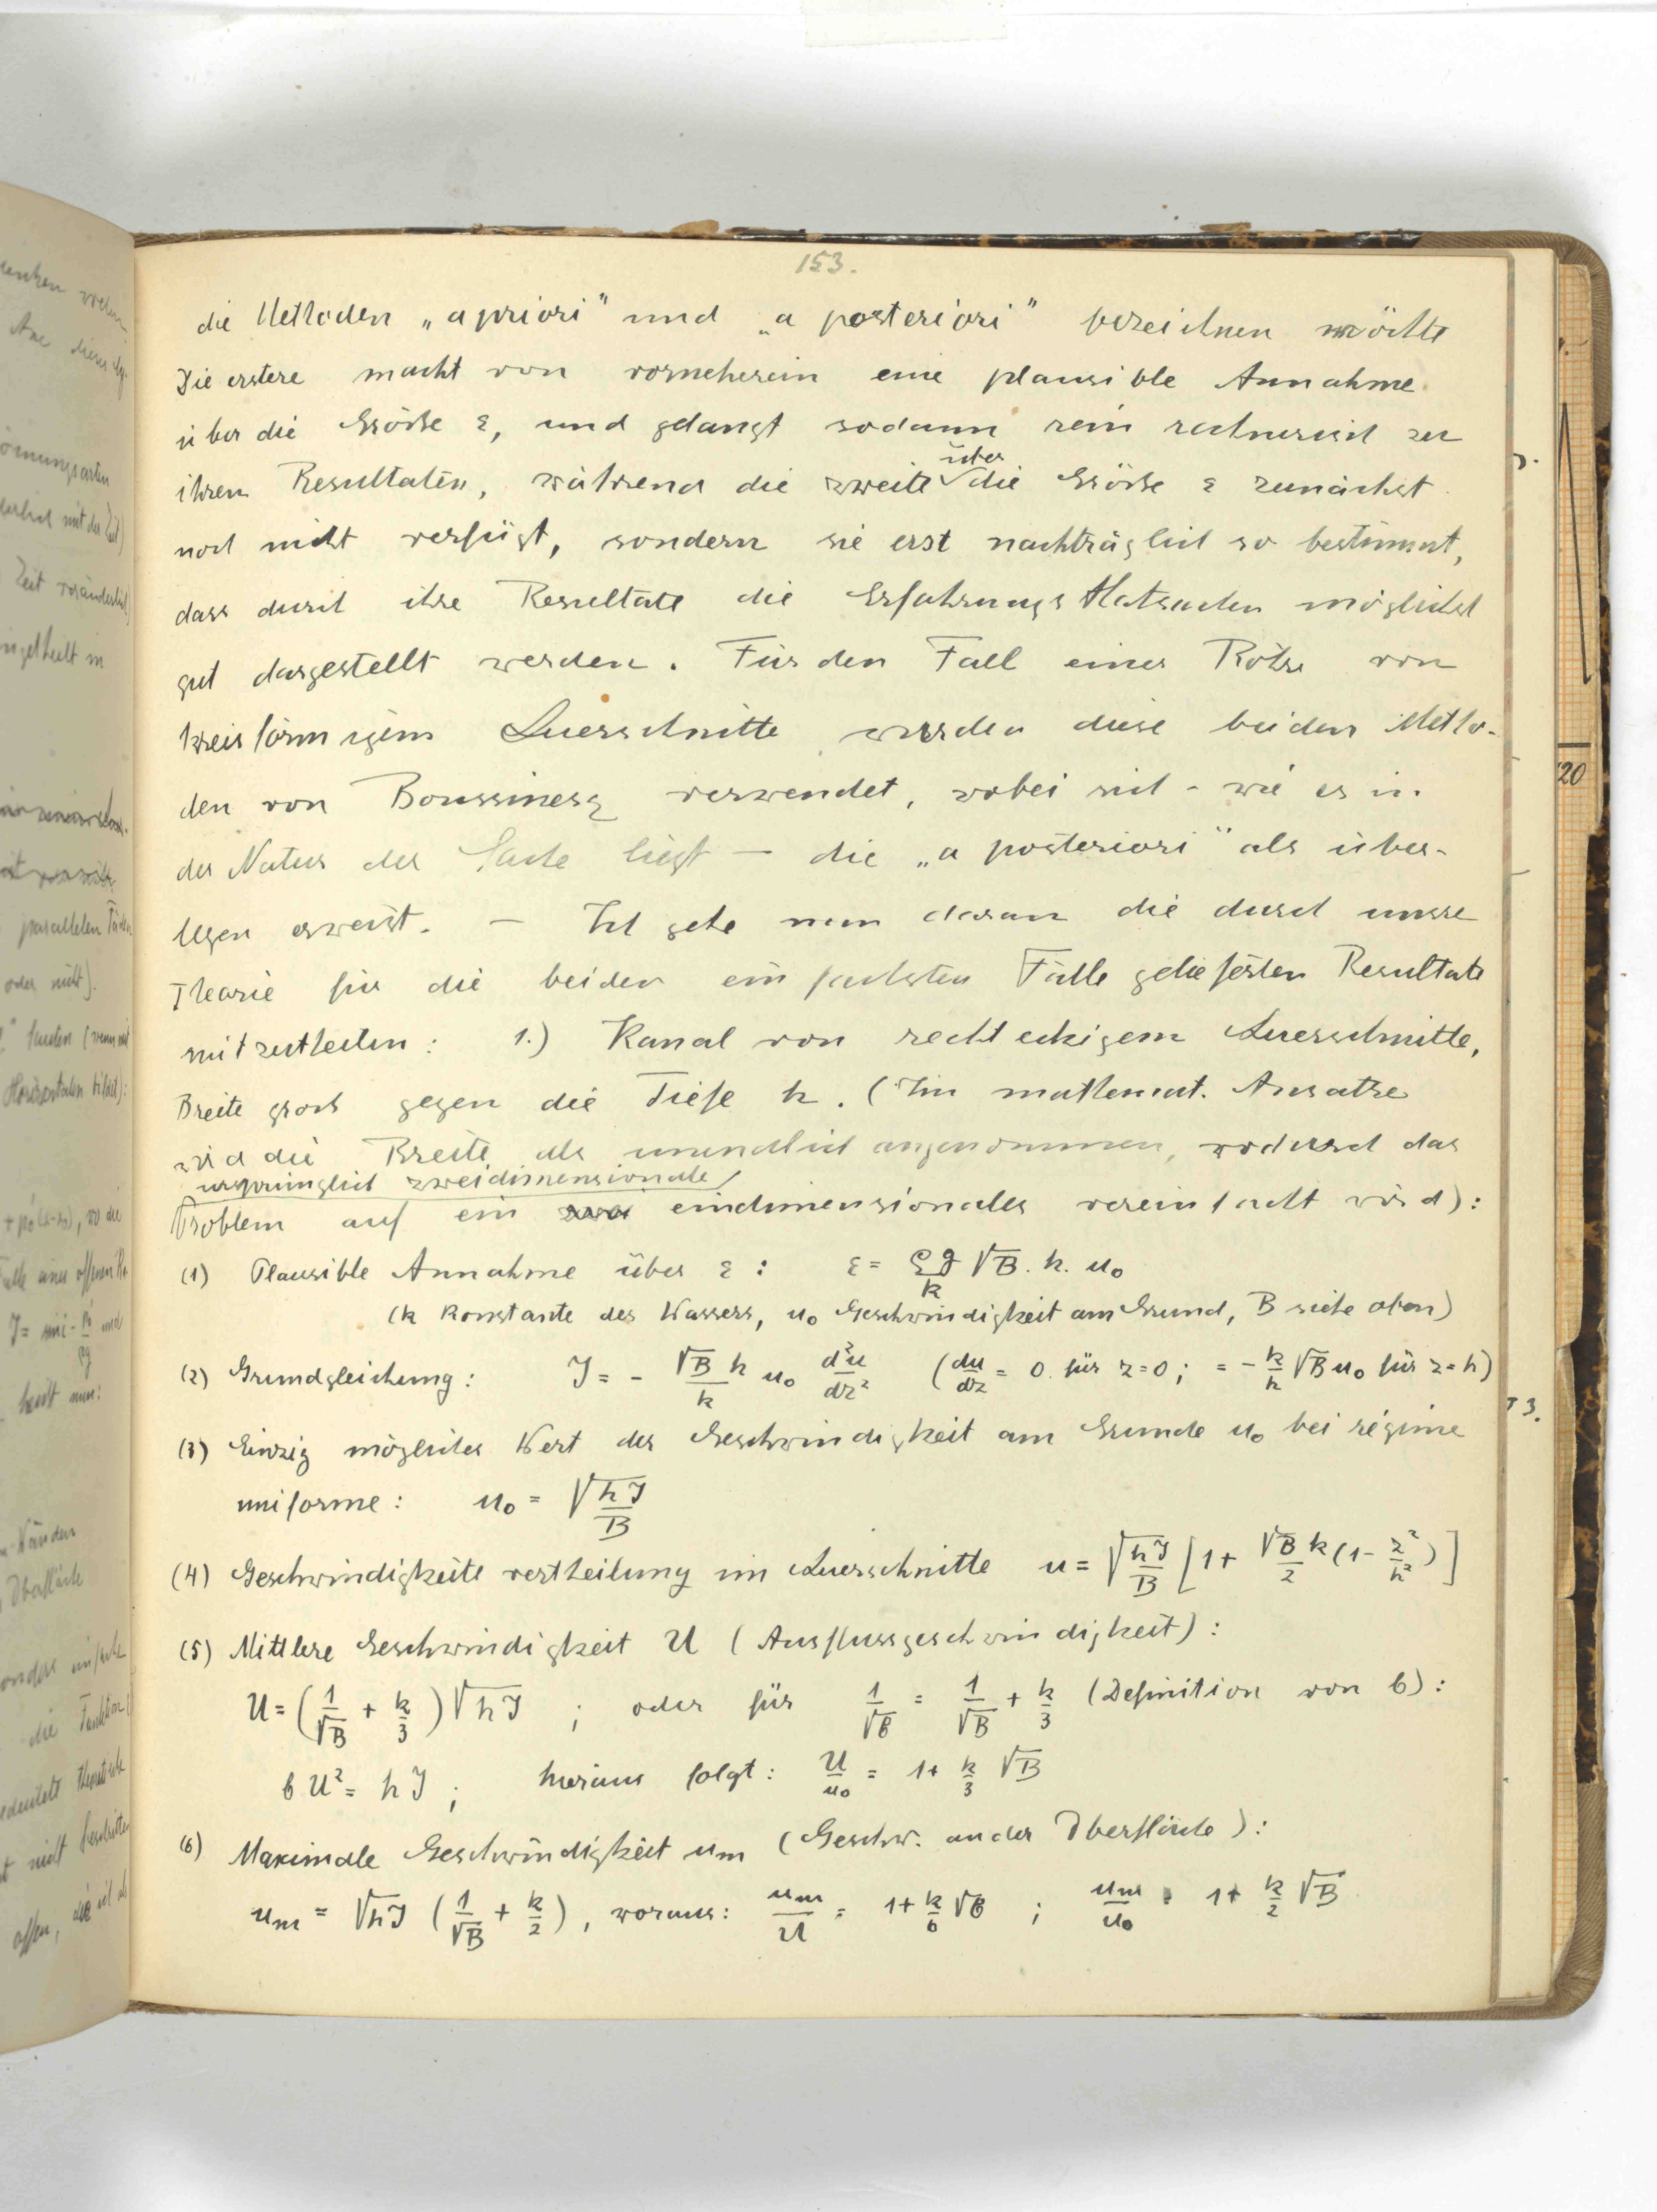 153.
die Methoden „a priori" und „a posteriori" bezeichnen möchte
Die erstere macht von vorneherein eine plausible Annahme
über die Größe ε, und gelangt sodann rein rechnerisch zu
ihren Resultaten, während die zweite über die Größe ε zunächst
noch nicht verfügt, sondern sie erst nachträglich so bestimmt,
dass durch ihre Resultate die Erfahrungsthatsachen möglichst
gut dargestellt werden. Für den Fall einer Röhre von
kreisförmigem Querschnitte werden diese beiden Metho-
den von Boussinesq verwendet, wobei sich - wie es in
der Natur der Sache liegt — die „a posteriori" als über-
legen erweist. — Ich gehe nun daran die durch unsre
Theorie für die beiden einfachsten Fälle gelieferten Resultate
mitzutheilen: 1.) Kanal von rechteckigem Querschnitte,
Breite gross gegen die Tiefe h. (Im mathemat. Ansatze
wird die Breite als unendlich angenommen, wodurch das
ursprünglich zweidimensionale
Problem auf ein eindimensionales vereinfacht wird):
(1) Plausible Annahme über ε: ε = ρg/k √B. h. u₀
(k Konstante des Wassers, u₀ Geschwindigkeit am Grund, B siehe oben)
(2) Grundgleichung: J = - √B h/k u₀ d²u/dz² (du/dz = 0 für z=0; = - k/h √B u₀ für z=h)
(3) Einzig möglicher Wert der Geschwindigkeit am Grunde u₀ bei régime
uniforme: u₀ = √(hJ/B)
(4) Geschwindigkeitsvertheilung im Querschnitte u = √(hJ/B) [1 + √B/2 k (1 - z²/h²)]
(5) Mittlere Geschwindigkeit U (Ausflussgeschwindigkeit):
U = (1/√B + k/3) √hJ ; oder für 1/√b = 1/√B + k/3 (Definition von b):
b U² = hJ ; hieraus folgt: U/u₀ = 1 + k/3 √B
(6) Maximale Geschwindigkeit um (Geschw. an der Oberfläche):
um = √hJ (1/√B + k/2), woraus: um/U = 1 + k/6 √b ; um/u₀ = 1 + k/2 √B
20